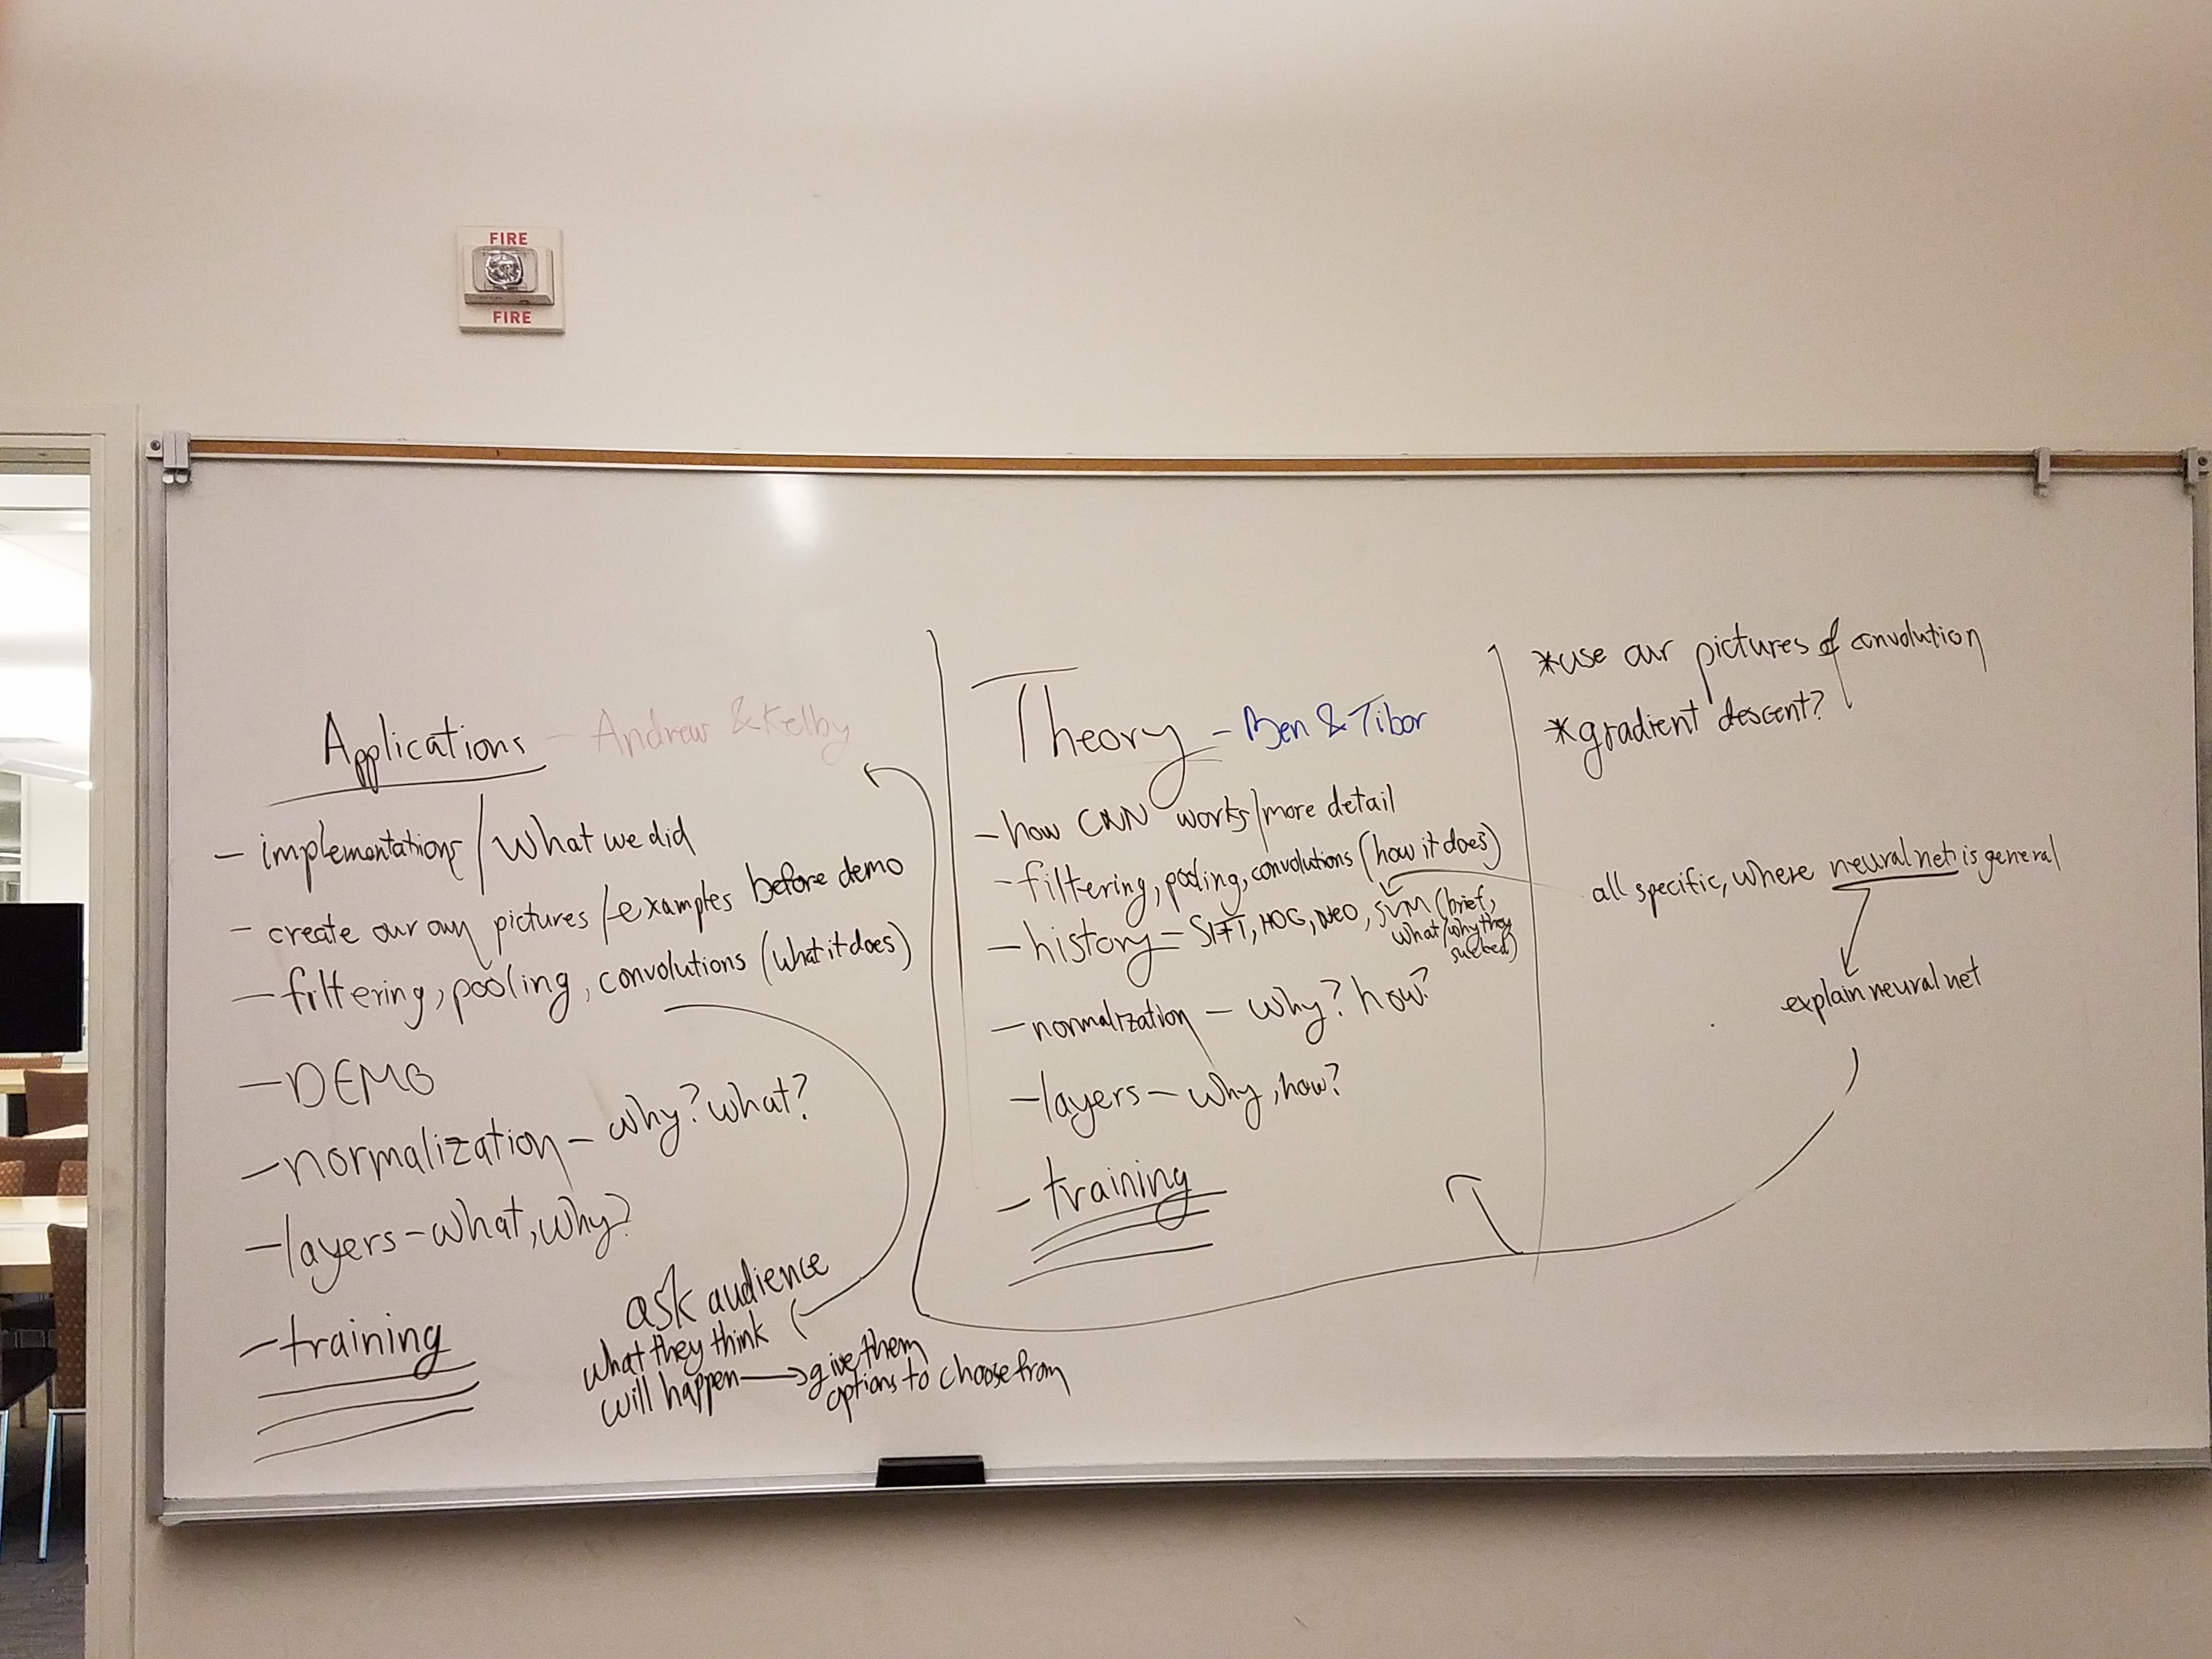 FIRE
FIRE
Applications - Andrew & Kelby
- implementations / What we did
- create our own pictures / examples before demo
- filtering, pooling, convolutions (what it does)
- DEMO
- normalization - why? what?
- layers - what, why?
- training
ask audience
what they think
will happen → give them
options to choose from
Theory - Ben & Tibor
- how CNN works / more detail
- filtering, pooling, convolutions (how it does)
- history = SIFT, HOG, SVM (brief,
what / why they
sucked)
- normalization - why? how?
- layers - why, how?
- training
*use our pictures of convolution
*gradient descent?
all specific, where neural net is general
explain neural net